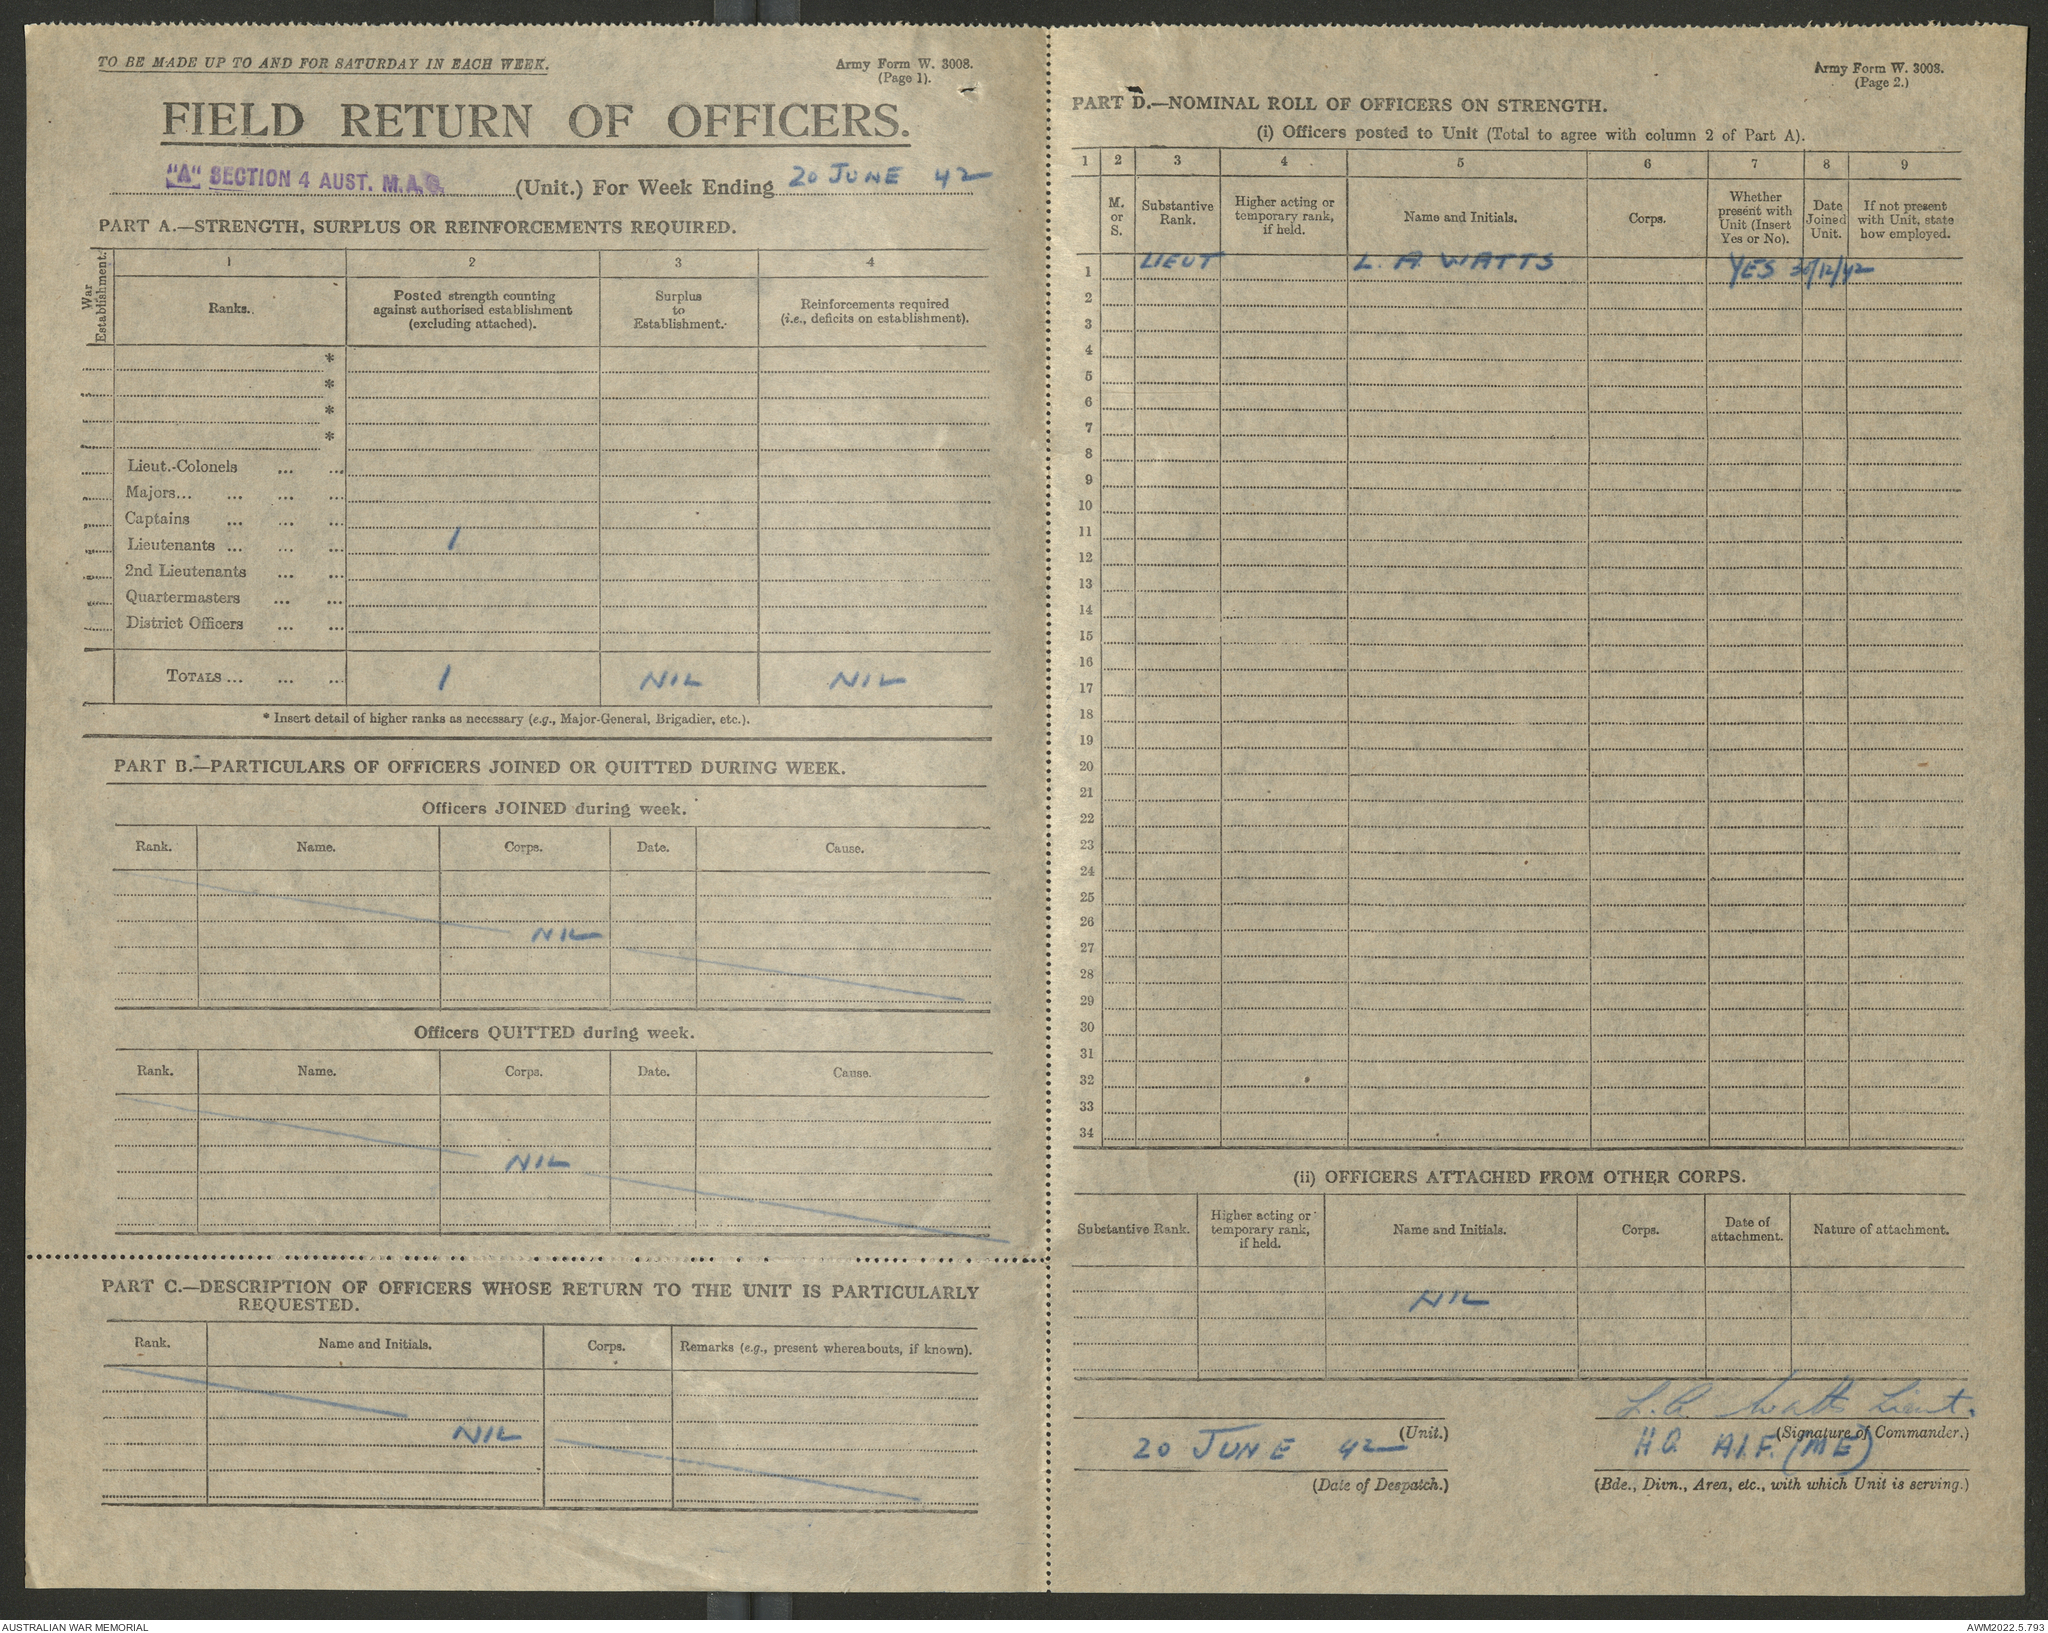 TO BE MADE UP TO AND FOR SATURDAY IN EACH WEEK.
Army Form W. 3008.
(Page 1).
FIELD RETURN OF OFFICERS.
"A" SECTION 4 AUST. M.A.S. (Unit.) For Week Ending 20 JUNE 42
PART A.—STRENGTH, SURPLUS OR REINFORCEMENTS REQUIRED.
War Establishment.
1 2 3 4
Ranks. Posted strength counting against authorised establishment (excluding attached). Surplus to Establishment. Reinforcements required (i.e., deficits on establishment).
*
*
*
*
Lieut.-Colonels ... ...
Majors... ... ... ...
Captains ... ... ...
Lieutenants ... ... ... 1
2nd Lieutenants ... ...
Quartermasters ... ...
District Officers ... ...
TOTALS ... ... ... 1 NIL NIL
* Insert detail of higher ranks as necessary (e.g., Major-General, Brigadier, etc.).
PART B.—PARTICULARS OF OFFICERS JOINED OR QUITTED DURING WEEK.
Officers JOINED during week.
Rank. Name. Corps. Date. Cause.
NIL
Officers QUITTED during week.
Rank. Name. Corps. Date. Cause.
NIL
PART C.—DESCRIPTION OF OFFICERS WHOSE RETURN TO THE UNIT IS PARTICULARLY
REQUESTED.
Rank. Name and Initials. Corps. Remarks (e.g., present whereabouts, if known).
NIL
Army Form W. 3008.
(Page 2.)
PART D.—NOMINAL ROLL OF OFFICERS ON STRENGTH.
(i) Officers posted to Unit (Total to agree with column 2 of Part A).
1 2 3 4 5 6 7 8 9
M. or S. Substantive Rank. Higher acting or temporary rank, if held. Name and Initials. Corps. Whether present with Unit (Insert Yes or No). Date Joined Unit. If not present with Unit, state how employed.
1 LIEUT L. A. WATTS YES 30/12/42
2
3
4
5
6
7
8
9
10
11
12
13
14
15
16
17
18
19
20
21
22
23
24
25
26
27
28
29
30
31
32
33
34
(ii) OFFICERS ATTACHED FROM OTHER CORPS.
Substantive Rank. Higher acting or temporary rank, if held. Name and Initials. Corps. Date of attachment. Nature of attachment.
NIL
L. A. Watts Lieut.
(Unit.) (Signature of Commander.)
20 JUNE 42 H Q A.I.F. (M E)
(Date of Despatch.) (Bde., Divn., Area, etc., with which Unit is serving.)
AUSTRALIAN WAR MEMORIAL
AWM2022.5.793